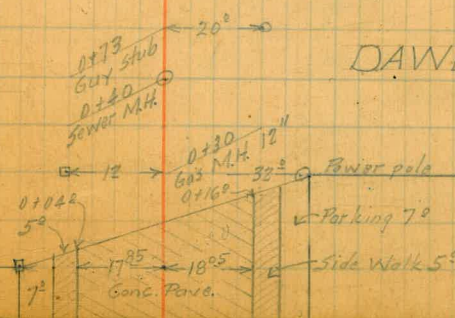 20⁰
0+73
Guy Stub
DAW
0+40
Sewer M.H.
0+30
Gas M.H. 12"
12
32⁰
Power pole
0+16⁰
0+04²
5⁰
Parking 7⁰
17⁸⁵
18⁰⁵
Side Walk 5⁰
7⁰
Conc. Pave.